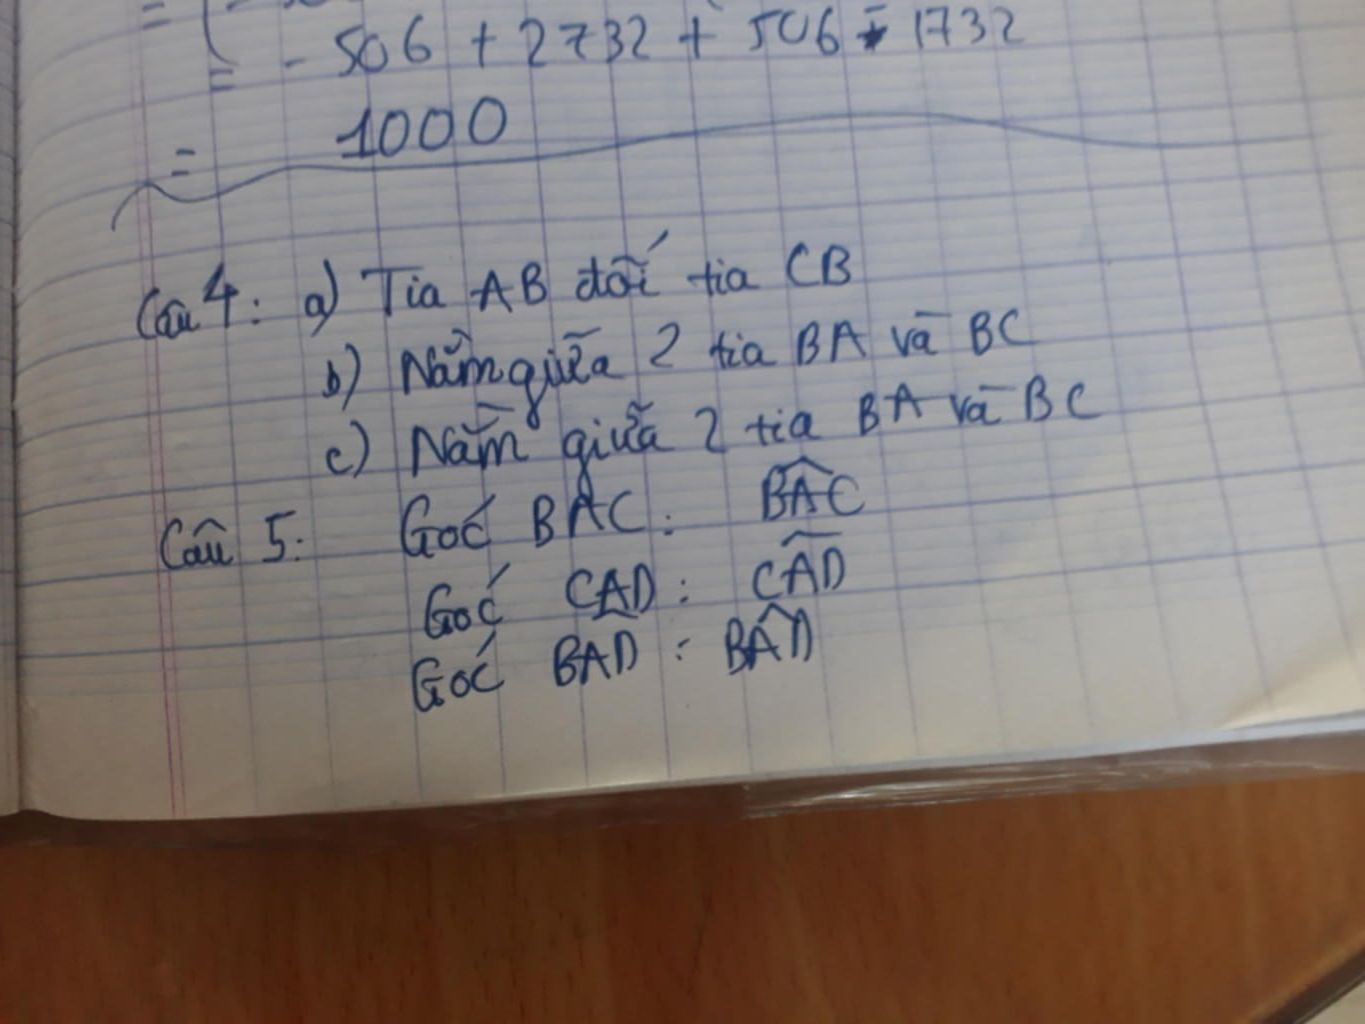 = (
= - 506 + 2732 + 506 - 1732
= 1000
Câu 4: a) Tia AB đối tia CB
b) Nằm giữa 2 tia BA và BC
c) Nằm giữa 2 tia BA và BC
Câu 5: Góc BAC: BAC
Góc CAD: CAD
Góc BAD: BAD